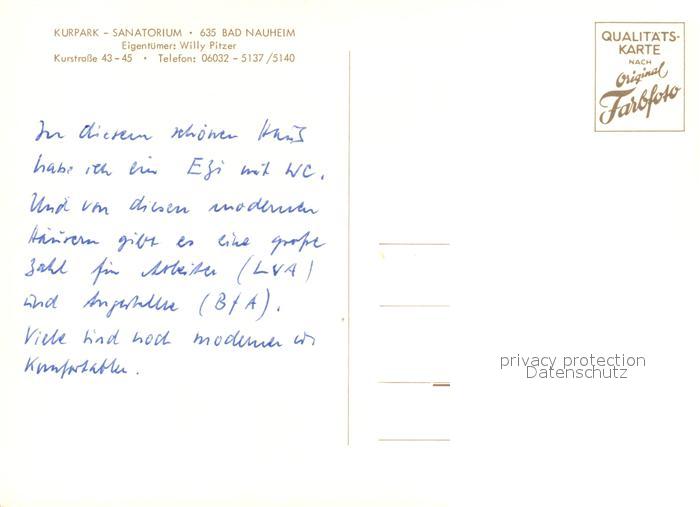 KURPARK – SANATORIUM • 635 BAD NAUHEIM
Eigentümer: Willy Pitzer
Kurstraße 43–45 • Telefon: 06032 - 5137/5140
QUALITÄTS-
KARTE
NACH
Original
Farbfoto
In diesem schönen Haus
habe ich ein EZi mit WC.
Und von diesen modernen
Häusern gibt es eine große
Zahl für Arbeiter (LVA)
und Angestellte (BfA).
Viele sind noch moderner
Komfortabler.
privacy protection
Datenschutz